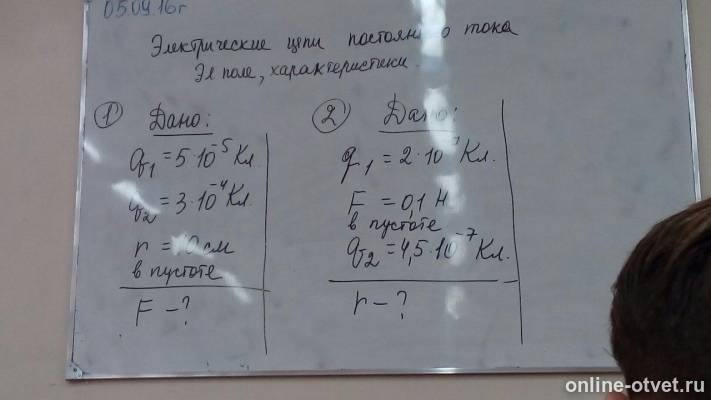 05.09.16г
Электрические цепи постоян о тока
Эл поле, характеристики.
1 Дано:
q₁ = 5·10⁻⁵ Кл.
q₂ = 3·10⁻⁴ Кл.
r = 0 см
в пустоте
F - ?
2 Дано:
q₁ = 2·10⁻⁷ Кл.
F = 0,1 Н
в пустоте
q₂ = 4,5·10⁻⁷ Кл.
r - ?
online-otvet.ru